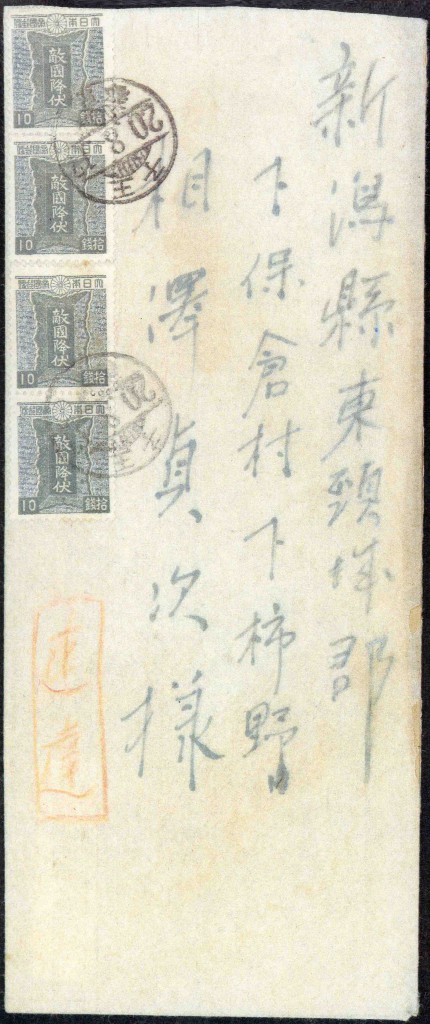 新潟縣東頸城郡
下保倉村下柿野
相澤貞次様
大日本帝國郵便
敵國降伏
10
拾錢
大日本帝國郵便
敵國降伏
10
拾錢
大日本帝國郵便
敵國降伏
10
拾錢
大日本帝國郵便
敵國降伏
10
拾錢
20
王子
20
王子
速達